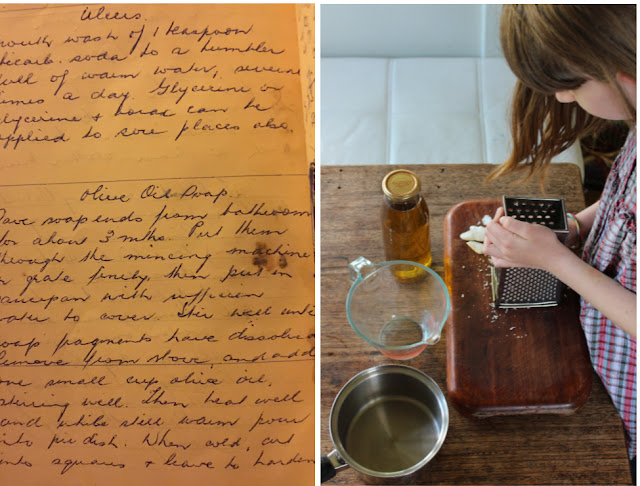 Ulcers.
mouth wash of 1 teaspoon
bicarb. soda to a tumbler
full of warm water, several
times a day. Glycerine or
glycerine + borax can be
applied to sore places also.
Olive Oil Soap.
Save soap ends from bathroom
for about 3 mths. Put them
through the mincing machine
or grate finely, then put in a
saucepan with sufficien
water to cover. Stir well unti
soap fragments have dissolved
Remove from stove, and add
one small cup olive oil,
stirring well. Then beat well
and while still warm pour
into pie dish. When cold, cut
into squares + leave to harden